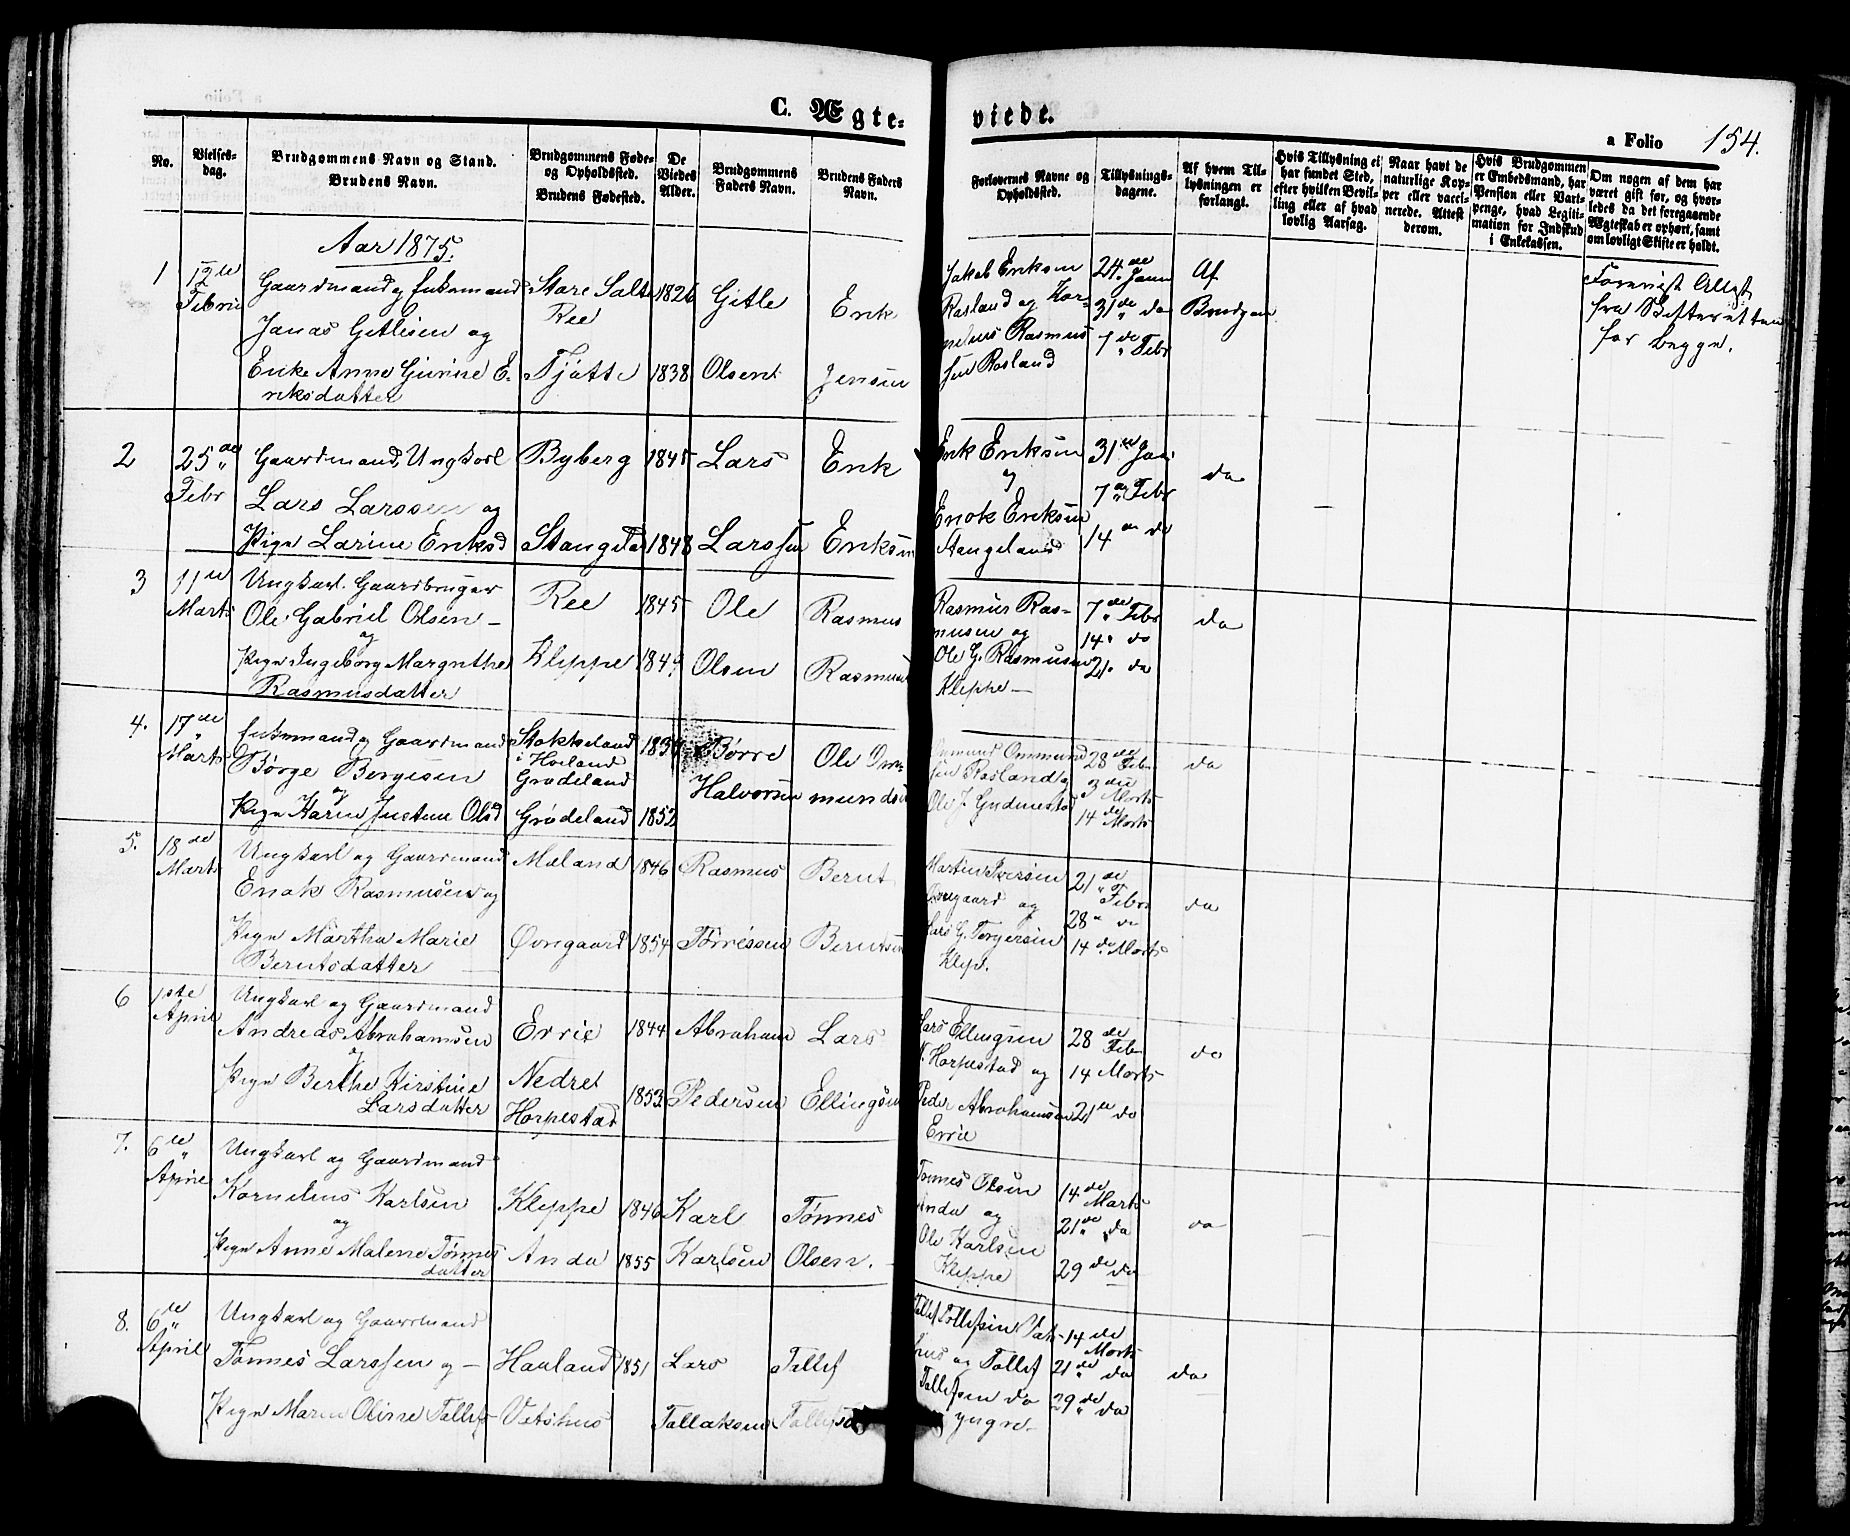 C. Ægte-
viede.
a Folio 154.
No.
Vielses-
dag.
Brudgommens Navn og Stand.
Brudens Navn.
Brudgommens Føde-
og Opholdssted.
Brudens Fødested.
De
Viedes
Alder.
Brudgommens
Faders Navn.
Brudens Faders
Navn.
Forlovernes Navne og
Opholdssted.
Tillysnings-
dagene.
Af hvem Til-
lysningen er
forlangt.
Hvis Tillysning ei
har fundet Sted,
efter hvilken Bevil-
ling eller af hvad
lovlig Aarsag.
Naar havt de
naturlige Kop-
per eller vacci-
nerede. Attest
derom.
Hvis Brudgommen
er Embedsmand, har
Pension eller Vart-
penge, hvad Legiti-
mation for Indskud
i Enkekassen.
Om nogen af dem har
været gift før, og hvor-
ledes da det foregaaende
Ægteskab er ophørt, samt
om lovligt Skifte er holdt.
Aar 1875.
1
12te
Febru
Gaardmand og Enkemand
Jonas Gitlesen og
Enke Anne Gurine E-
riksdatter
Store Salte
Ree
Tjøtte
1826
1838
Gitle
Olsen
Erik
Jensen
Jakob Eriksen
Rosland og Kor-
nelius Rasmus
sen Rosland
24de Janu
31de do
7de Febr
Af
Brudgom
Forevist Attest
fra Skifteretten
for begge.
2
25de
Febr
Gaardmand, Ungkarl
Lars Larssen og
Pige Larine Eriksd
Byberg
Stangeland
1845
1848
Lars
Larssen
Erik
Eriksen
Erik Eriksen
og
Enok Eriksen
Stangeland
31te Jan
7de Febr
14de do
do
3
11te
Marts
Ungkarl. Gaardbruger
Ole Gabriel Olsen -
og
Pige Ingeborg Margrethe
Rasmusdatter
Ree
Kleppe
1845
1849
Ole
Olsen
Rasmus
Rasmusen
Rasmus Ras-
musen og
Ole G. Rasmusen
Kleppe -
7de Febr
14. do
21. do
do
4.
17de
Marts
Enkemand og Gaardmand
Børge Børgesen
og
Pige Karen Justine Olsd
Stokkeland
i Høiland
Grødeland
Grødeland
1852
Børre
Halvorsen
Ole Om-
mundsen
Ommund
sen Rosland og
Ole J. Gudmestad
28de Febr
Marts
14de Marts
do
5.
18de
Marts
Ungkarl og Gaardmand
Enok Rasmusen og
Pige Martha Marie
Berntsdatter
Mæland
Øvregaard
1846
1854
Rasmus
Tørressen
Bernt
Berntsen
Martin Iversen
Øvregaard og
Lars G. Torgersen
Klep.
21de
Febr
28" do
14de Marts
do
6
1ste
April
Ungkarl og Gaardmand
Andreas Abrahamsen
og
Pige Berthe Kirstine
Larsdatter
Errie
Nedre
Horpestad
1844
1853
Abraham
Pedersen
Lars
Ellingsen
Lars Ellingsen
N. Horpestad og
Peder Abrahamsen
Errie
28de
Febr
14 Marts
21de do
do
7.
6te
April
Ungkarl og Gaardmand
Kornelius Karlsen
og
Pige Anne Malene Tønnes
datter
Kleppe
Anda
1846
1855
Karl
Karlsen
Tønnes
Olsen.
Tønnes Olsen
Anda og
Ole Karlsen
Kleppe
14de
Marts
21de do
29de do
do
8.
6te
April
Ungkarl og Gaardmand
Tønnes Larssen og -
Pige Maren Oline Tollefs
Haaland
Vatshus
1851
Lars
Tollaksen
Tollef
Tollefsen
Tollef Tollefsen Vats-
hus og Tollef
Tollefsen do
yngre.
14de
Marts
21de do
29de do
do